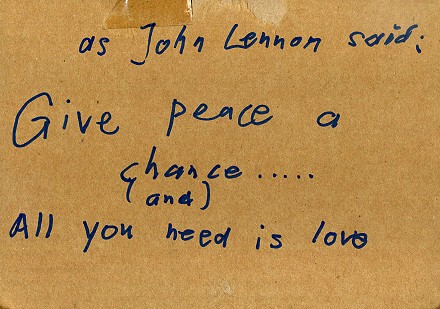 as John Lennon said:
Give peace a
chance.....
(and)
All you need is love